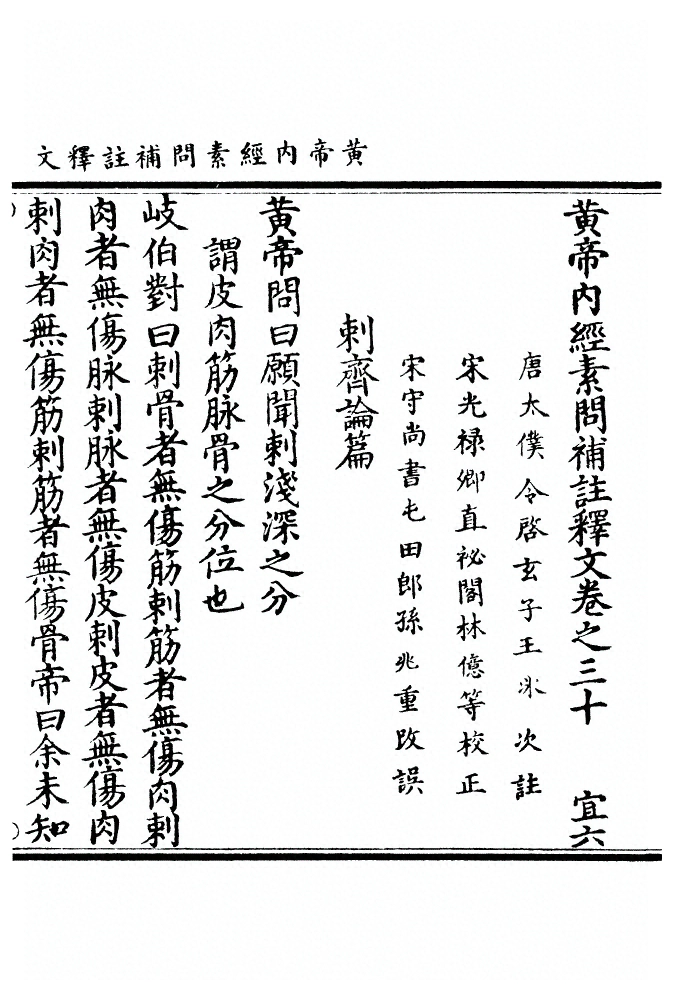 黄帝內經素問補註釋文
黄帝內經素問補註釋文卷之三十　宜六
唐太僕令啓玄子王氷次註
宋光禄卿直祕閣林億等校正
宋守尚書屯田郎孫兆重改誤
刺齊論篇
黄帝問曰願聞刺淺深之分
謂皮肉筋脉骨之分位也
岐伯對曰刺骨者無傷筋刺筋者無傷肉刺
肉者無傷脉刺脉者無傷皮刺皮者無傷肉
刺肉者無傷筋刺筋者無傷骨帝曰余未知